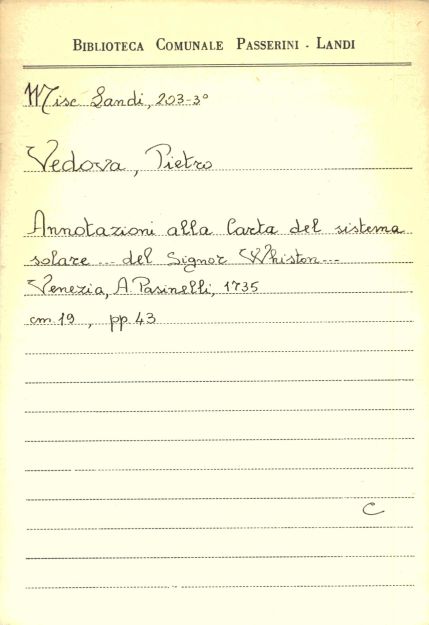 BIBLIOTECA COMUNALE PASSERINI - LANDI
Misc. Landi, 203-3°
Vedova, Pietro
Annotazioni alla Carta del sistema
solare ... del Signor Whiston...
Venezia, A. Pasinelli, 1735
cm. 19 , pp. 43
C